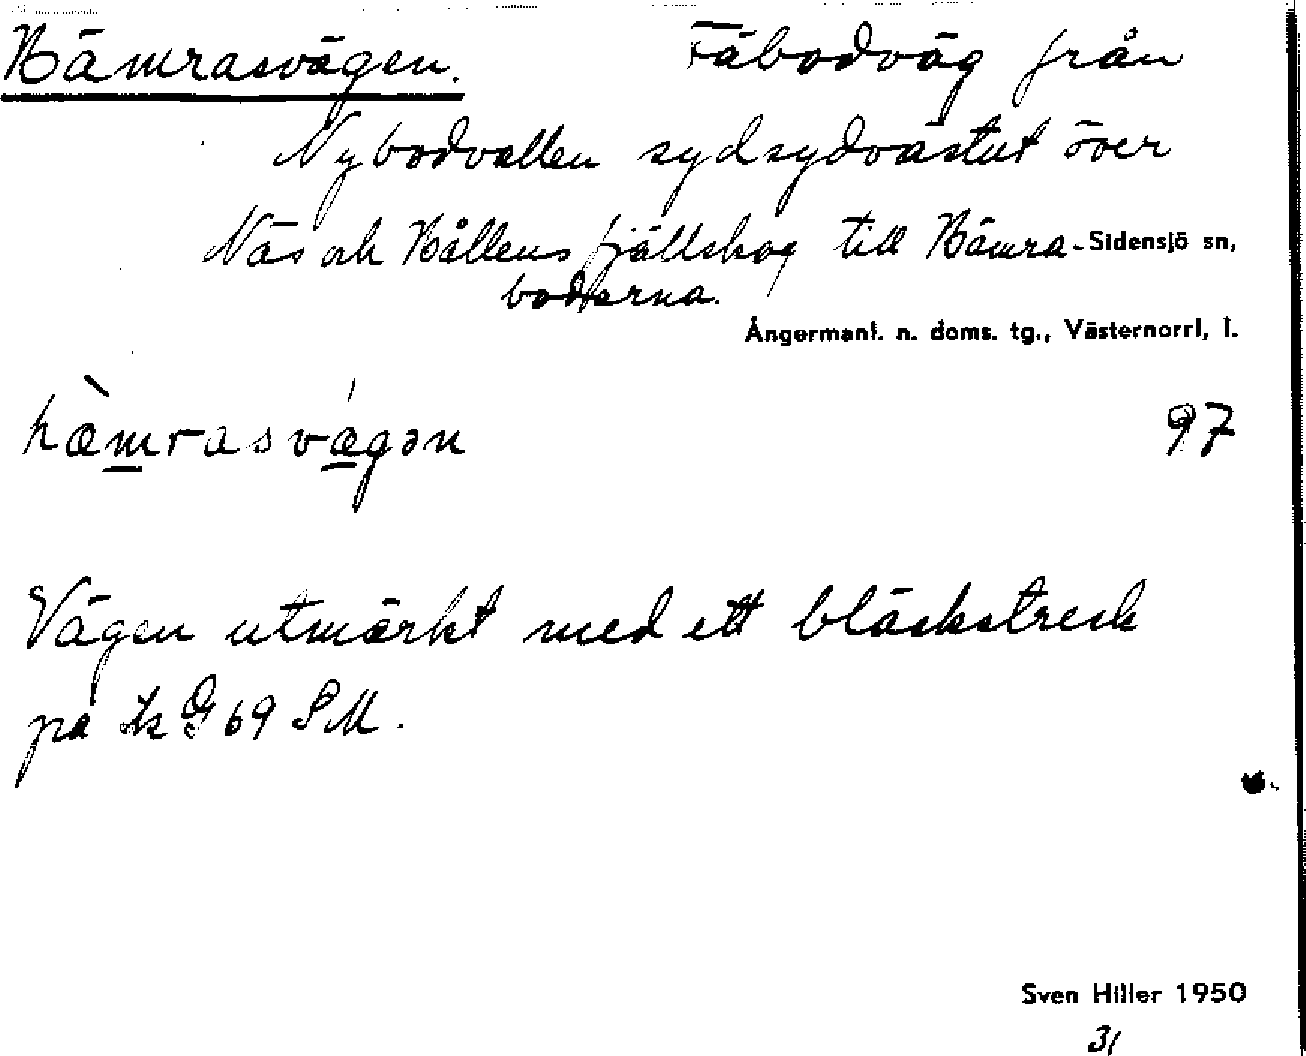 Hämrasvägen. Fäbodväg från
Nybodvallen sydsydvästut över
Näs och Hållens fjällskog till Hämra-
bodarna.
Sidensjö sn,
Ångermanl. n. doms. tg., Västernorrl. l.
hæ̀mrasvǽgən 97
Vägen utmärkt med ett bläckstreck
på tk G 69 SM.
Sven Hiller 1950
31